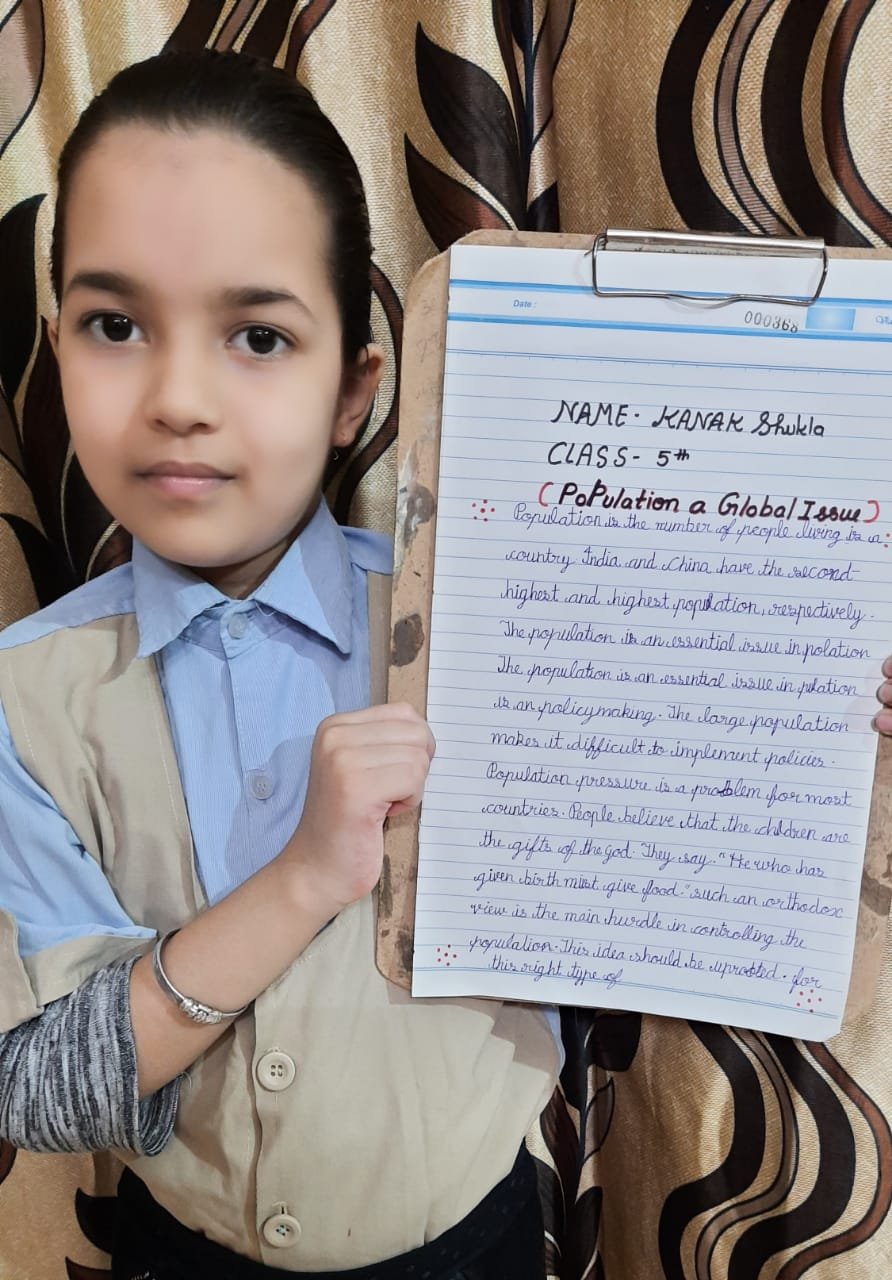 Date :
000368
NAME - KANAK Shukla
CLASS - 5th
(PoPulation a Global Issue)
Population is the number of people living is a
country India and China have the second
highest and highest population, respectively.
The population is an essential issue in polation
The population is an essential issue in plation
is an policymaking. The large population
makes it difficult to implement policies.
Population pressure is a problem for most
countries. People believe that the children are
the gifts of the god. They say. "He who has
given birth must give food." such an orthodox
view is the main hurdle in controlling the
population. This idea should be uprooted. for
this right type of